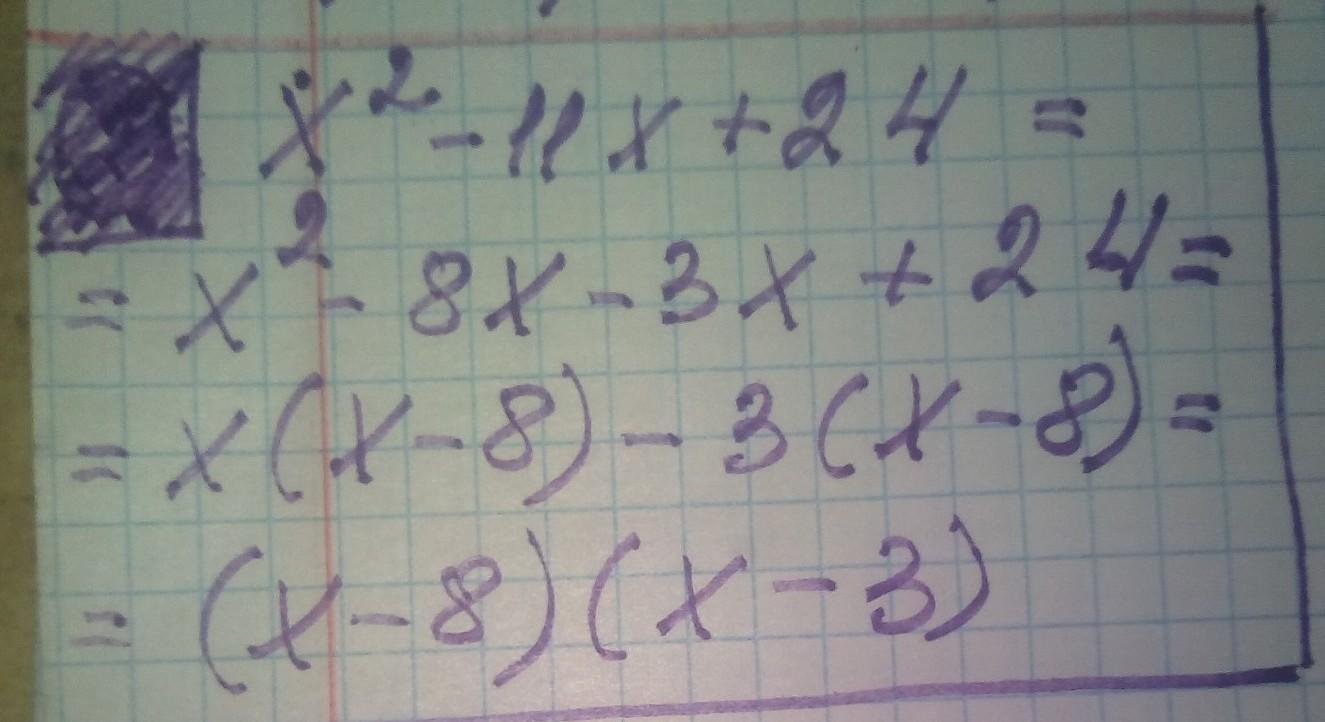 x² - 11x + 24 =
= x² - 8x - 3x + 24 =
= x(x - 8) - 3(x - 8) =
= (x - 8)(x - 3)